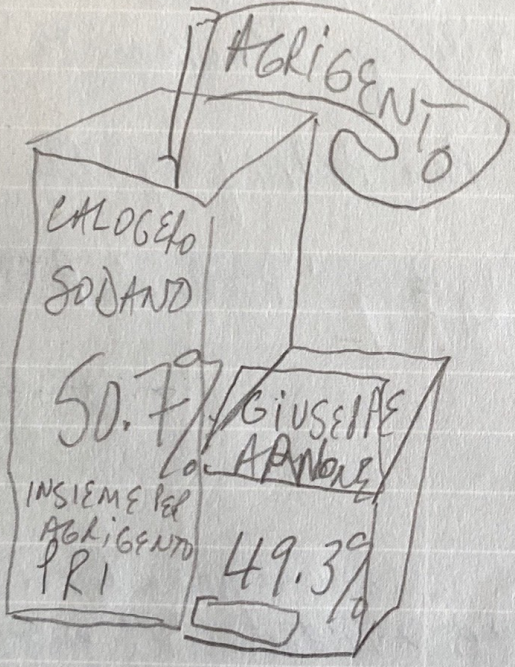 AGRIGENTO
CALOGERO
SODANO
50.7%
INSIEME PER
AGRIGENTO
PRI
GIUSEPPE
ARNONE
49.3%